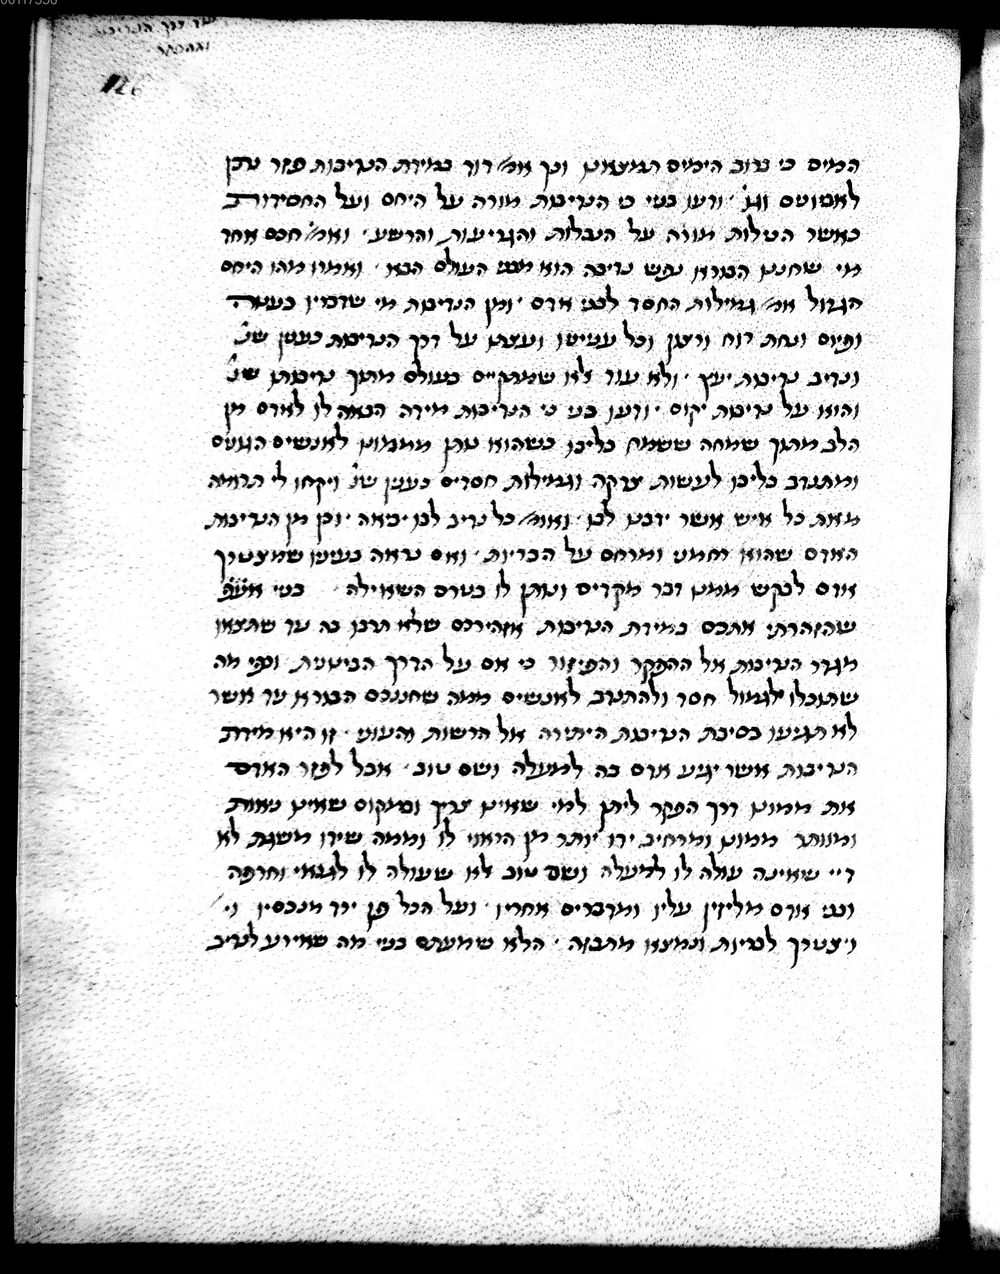 המים כי ברוב הימים תמצאנו וכך אמ' דוד במידת הנדיבות פזר נתן
לאביונים וגו' ודעו בני כי הנדיבות מורה על היחס ועל החסידות
כאשר הנבלות מורה על הנבלות והגריעות והרשע ואמ' חכם אחד
מי שחננו הבורא נפש נדיבה הוא מבני העולם הבא ואמרו מהו היחס
הגדול אמ' גמילות החסד לבני אדם ומן הנדיבות מי שדבריו בענוה
ופיוס ונחת רוח ורצון וכל ענייניו ועצתו על דרך הנדיבות כענין שנ'
ונדיב נדיבות יעץ ולא עוד אלא שמתקיים בעולם מתוך נדיבותו שנ'
והוא על נדיבות יקום ודעו בני כי הנדיבות מידה הבאה לו לאדם מן
הלב מתוך שמחה ששמח בליבו כשהוא נותן מממונו לאנשים הגונים
ומתנדב בליבו לעשות צדקה וגמילות חסדים כענין שנ' ויקחו לי תרומה
מאת כל איש אשר ידבנו לבו ואומ' כל נדיב לבו יביאה וכן מן הנדיבות
האדם שהוא רחמני ומרחם על הבריות ואם נראה בעיניו שמצטרך
אדם לבקש ממנו דבר מקדים ונותן לו בטרם השאילה בני אע"פ
שהזהרתי אתכם במידת הנדיבות אזהירכם שלא תרבו בה עד שתצאו
מגדר הנדיבות אל ההפקר והפיזור כי אם על הדרך הבינונית וכפי מה
שתוכלו לגמול חסד ולהתנדב לאנשים ממה שחננכם הבורא עד אשר
לא תגיעו בסיבת הנדיבות היתירה אל הרשות והעוני זו היא מידת
הנדיבות אשר יגיע אדם בה למעלה ושם טוב אבל לפזר האדם
את ממונו דרך הפקר ליתן למי שאינו צריך ובמקום שאינו נאות
ומוותר ממונו ומרחיב ידו יותר מן הראוי לו וממה שידו משגת לא
דיי שאינה עולה לו למעלה ושם טוב אלא שעולה לו לגנאי וחרפה
ובני אדם מליזין עליו ומדברים אחריו ועל הכל פן ירד מנכסיו וי
ויצטרך לבריות ונמצא מתבזה הלא שמעתם בני מה שאירע לנדיב